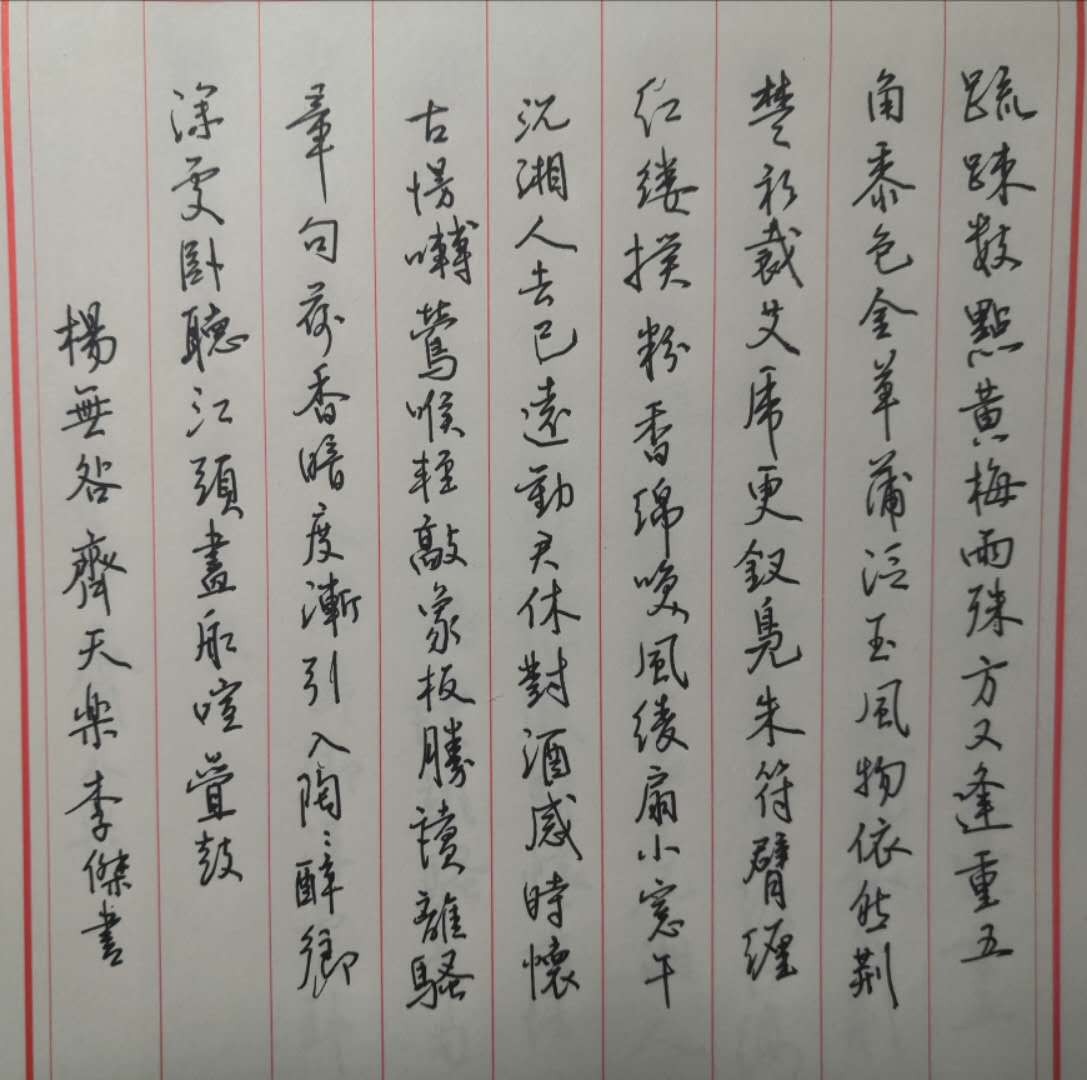 疏疎數點黃梅雨殊方又逢重五
角黍包金草蒲泛玉風物依然荆
楚衫裁艾虎更釵鳧朱符臂纒
红缕撲粉香綿喚風綾扇小窓午
沉湘人去已遠勸君休對酒感時懷
古慢囀鶯喉輕敲象板勝讀離騷
章句荷香暗度漸引入陶〻醉鄉
深處卧聽江頭畫船喧疊鼓
楊無咎齊天樂李傑書